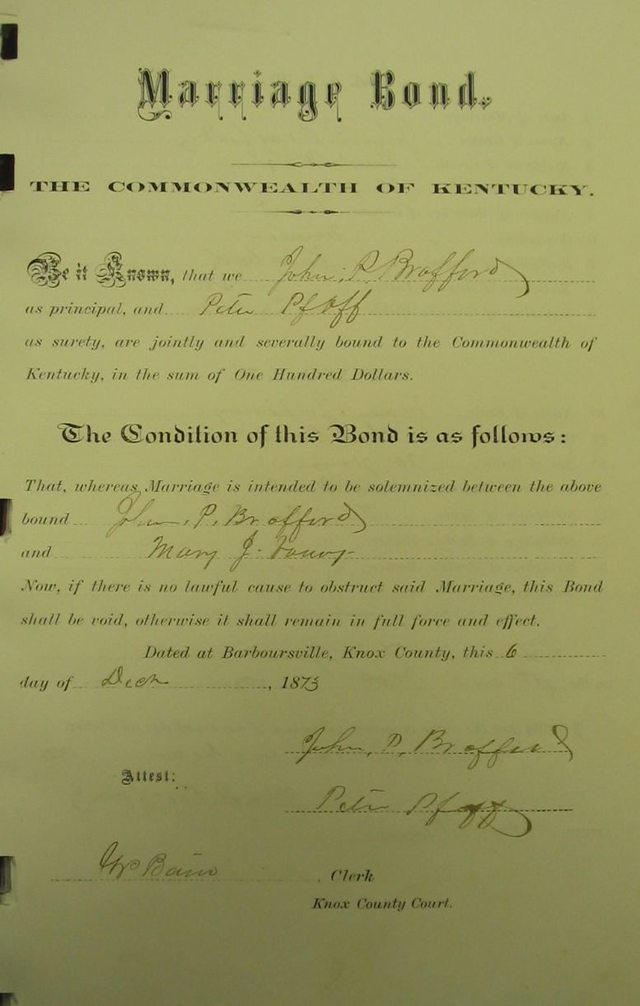 Marriage Bond.
THE COMMONWEALTH OF KENTUCKY.
Be it Known, that we John P. Brafford
as principal, and Peter Pfaff
as surety, are jointly and severally bound to the Commonwealth of
Kentucky, in the sum of One Hundred Dollars.
The Condition of this Bond is as follows:
That, whereas, Marriage is intended to be solemnized between the above
bound John P. Brafford
and Mary J.
Now, if there is no lawful cause to obstruct said Marriage, this Bond
shall be void, otherwise it shall remain in full force and effect.
Dated at Barboursville, Knox County, this 6
day of Decr, 1873
John P. Brafford
Attest:
Peter Pfaff
Clerk
Knox County Court.